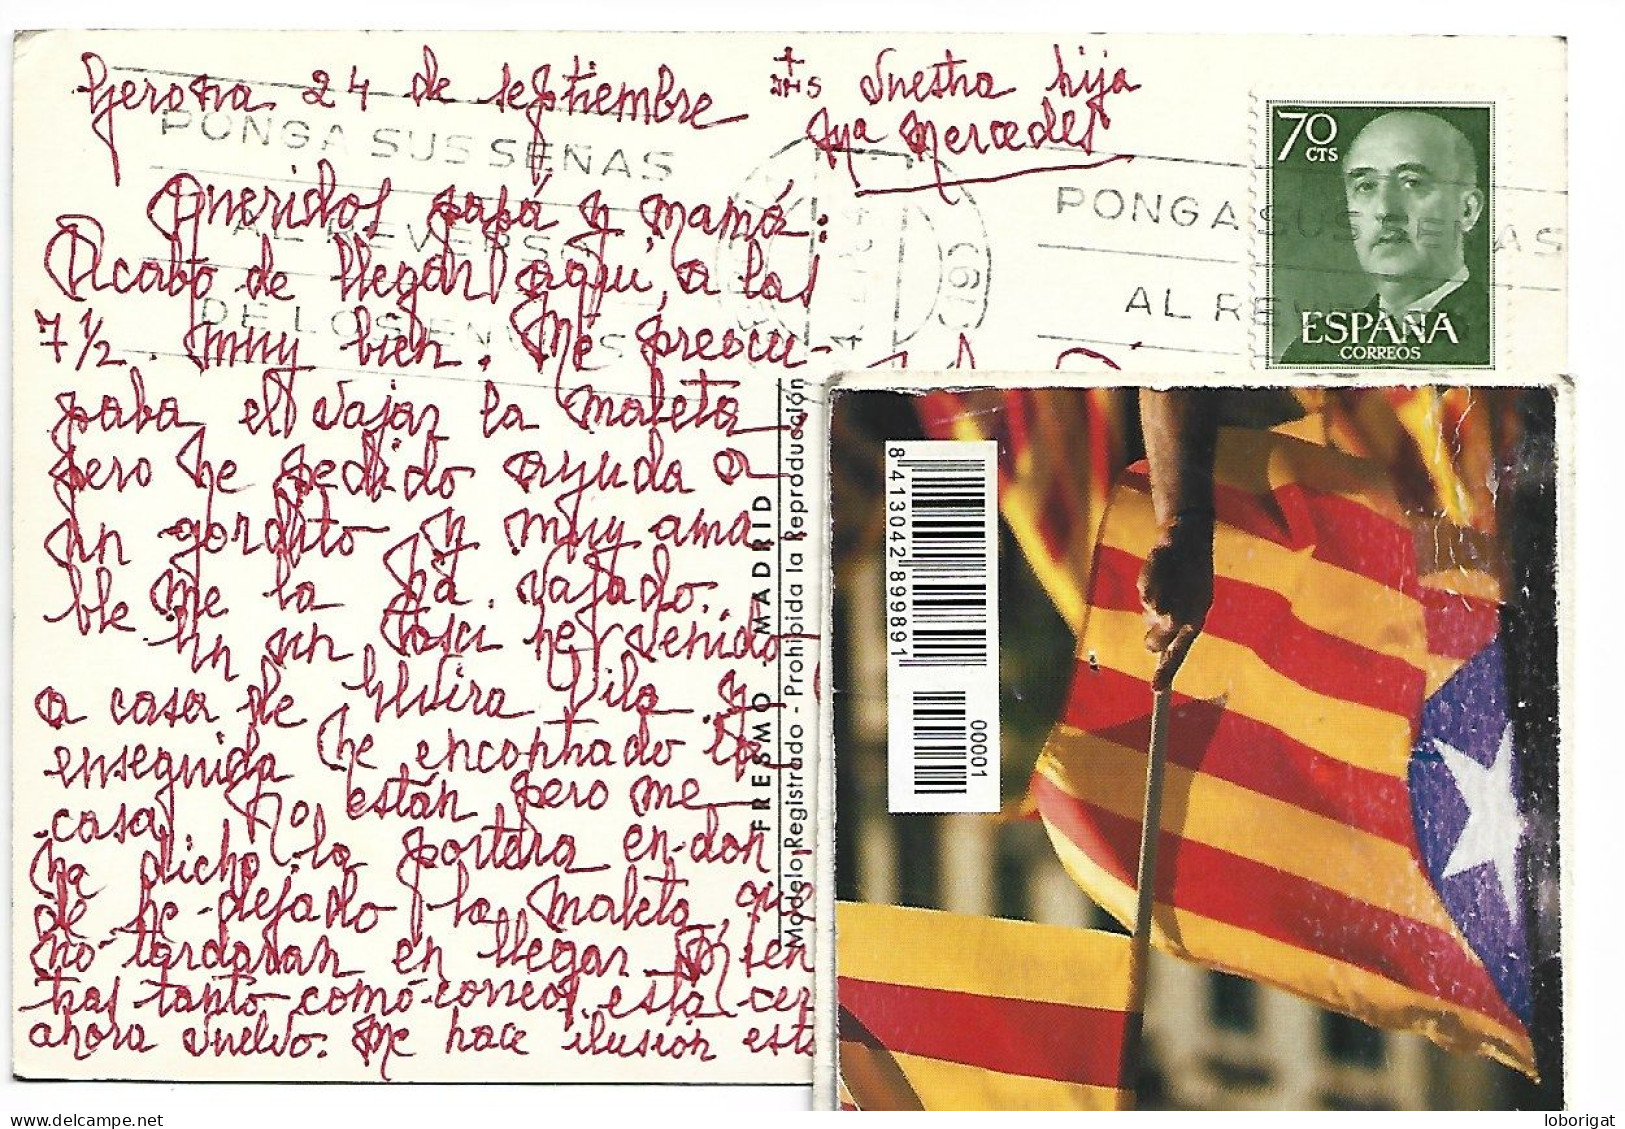 Gerona 24 de septiembre
+
JHS Vuestra hija
Mª Mercedes
Queridos papá y mamá:
Acabo de llegar aquí, a las
7 1/2. muy bien. Me preocu-
paba el vajar la maleta
pero he pedido ayuda a
un gordito y muy ama
ble me la ha vajado.
En un taxi he venido
a casa de Elvira Vila y
enseguida he encontrado la
casa. No están pero me
ha dicho la portera en don
de he dejado la maleta, que
no tardaran en llegar. Mien
tras tanto como correos está cer
ahora vuelvo. Me hace ilusión est
PONGA SUS SEÑAS
AL REVERSO
DE LOS ENVIOS
PONGA SUS SEÑAS
AL REVE
70
CTS
ESPAÑA
CORREOS
FRESMO MADRID
Modelo Registrado - Prohibida la Reproducción
8 413042 899891
00001
loborigat